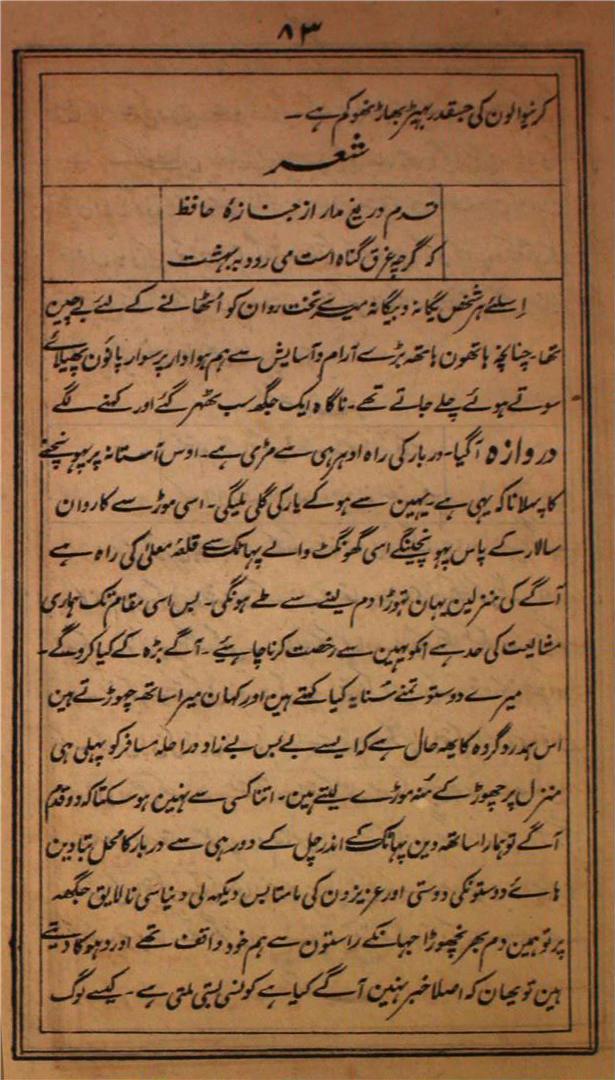 ۸۳
کرنیوالون کی جسقدر بھیڑ بھاڑ ہو کم ہے ۔
شعر
قدم دریغ مدار از جنازۂ حافظ
کہ گرچہ غرق گناہ است می رود بہ بہشت
اِسلئے ہر شخص یگانہ و بیگانہ میرے تخت روان کو اُٹھانے کے لئے بے چین
تھا۔ چنانچہ ہاتھون ہاتھہ بڑے آرام و آسایش سے ہم ہوادار پر سوار پاؤن پھیلائے
سوتے ہوئے چلے جاتے تھے۔ ناگاہ ایک جگھہ سب ٹھہر گئے اور کہنے لگے
دروازہ آگیا۔ دربار کی راہ ادہر ہی سے مڑی ہے۔ اوس آستانہ پر پہونچنے
کا پہلا ناکہ یہی ہے یہین سے ہو کے یار کی گلی ملیگی۔ اسی موڑ سے کاروان
سالار کے پاس پہونچینگے اسی گھونگٹ والے پہاٹک سے قلعۂ معلیٰ کی راہ ہے
آگے کی منزلین یہان تہوڑا دم لینے سے طے ہونگی۔ بس اسی مقام تک ہماری
مشایعت کی حد ہے انکو یہین سے رخصت کرنا چاہیئے۔ آگے بڑہ کے کیا کروگے۔
میرے دوستو تمنے سُنا یہ کیا کہتے ہین اور کہان میرا ساتھہ چھوڑتے ہین
اس ہمدرد گروہ کا یہہ حال ہے کہ ایسے بے بس بے زاد و راحلہ مسافر کو پہلی ہی
منزل پر چھوڑ کے مُنہ موڑے لیتے ہین۔ اتنا کسی سے نہین ہو سکتا کہ دو قدم
آگے تو ہمارا ساتھہ دین پہاٹک کے اندر چل کے دور ہی سے دربار کا محل بتا دین
ہائے دوستونکی دوستی اور عزیزون کی مامتا بس دیکھہ لی دنیا سی نالایق جگھہ
پر تو ہمین دم بھر نچھوڑا جہانکے راستون سے ہم خود واقف تھے اور دہوکا دیتے
ہین تو یہان کہ اصلا خبر نہین آگے کیا ہے کونسی بستی ملتی ہے۔ کیسے لوگ